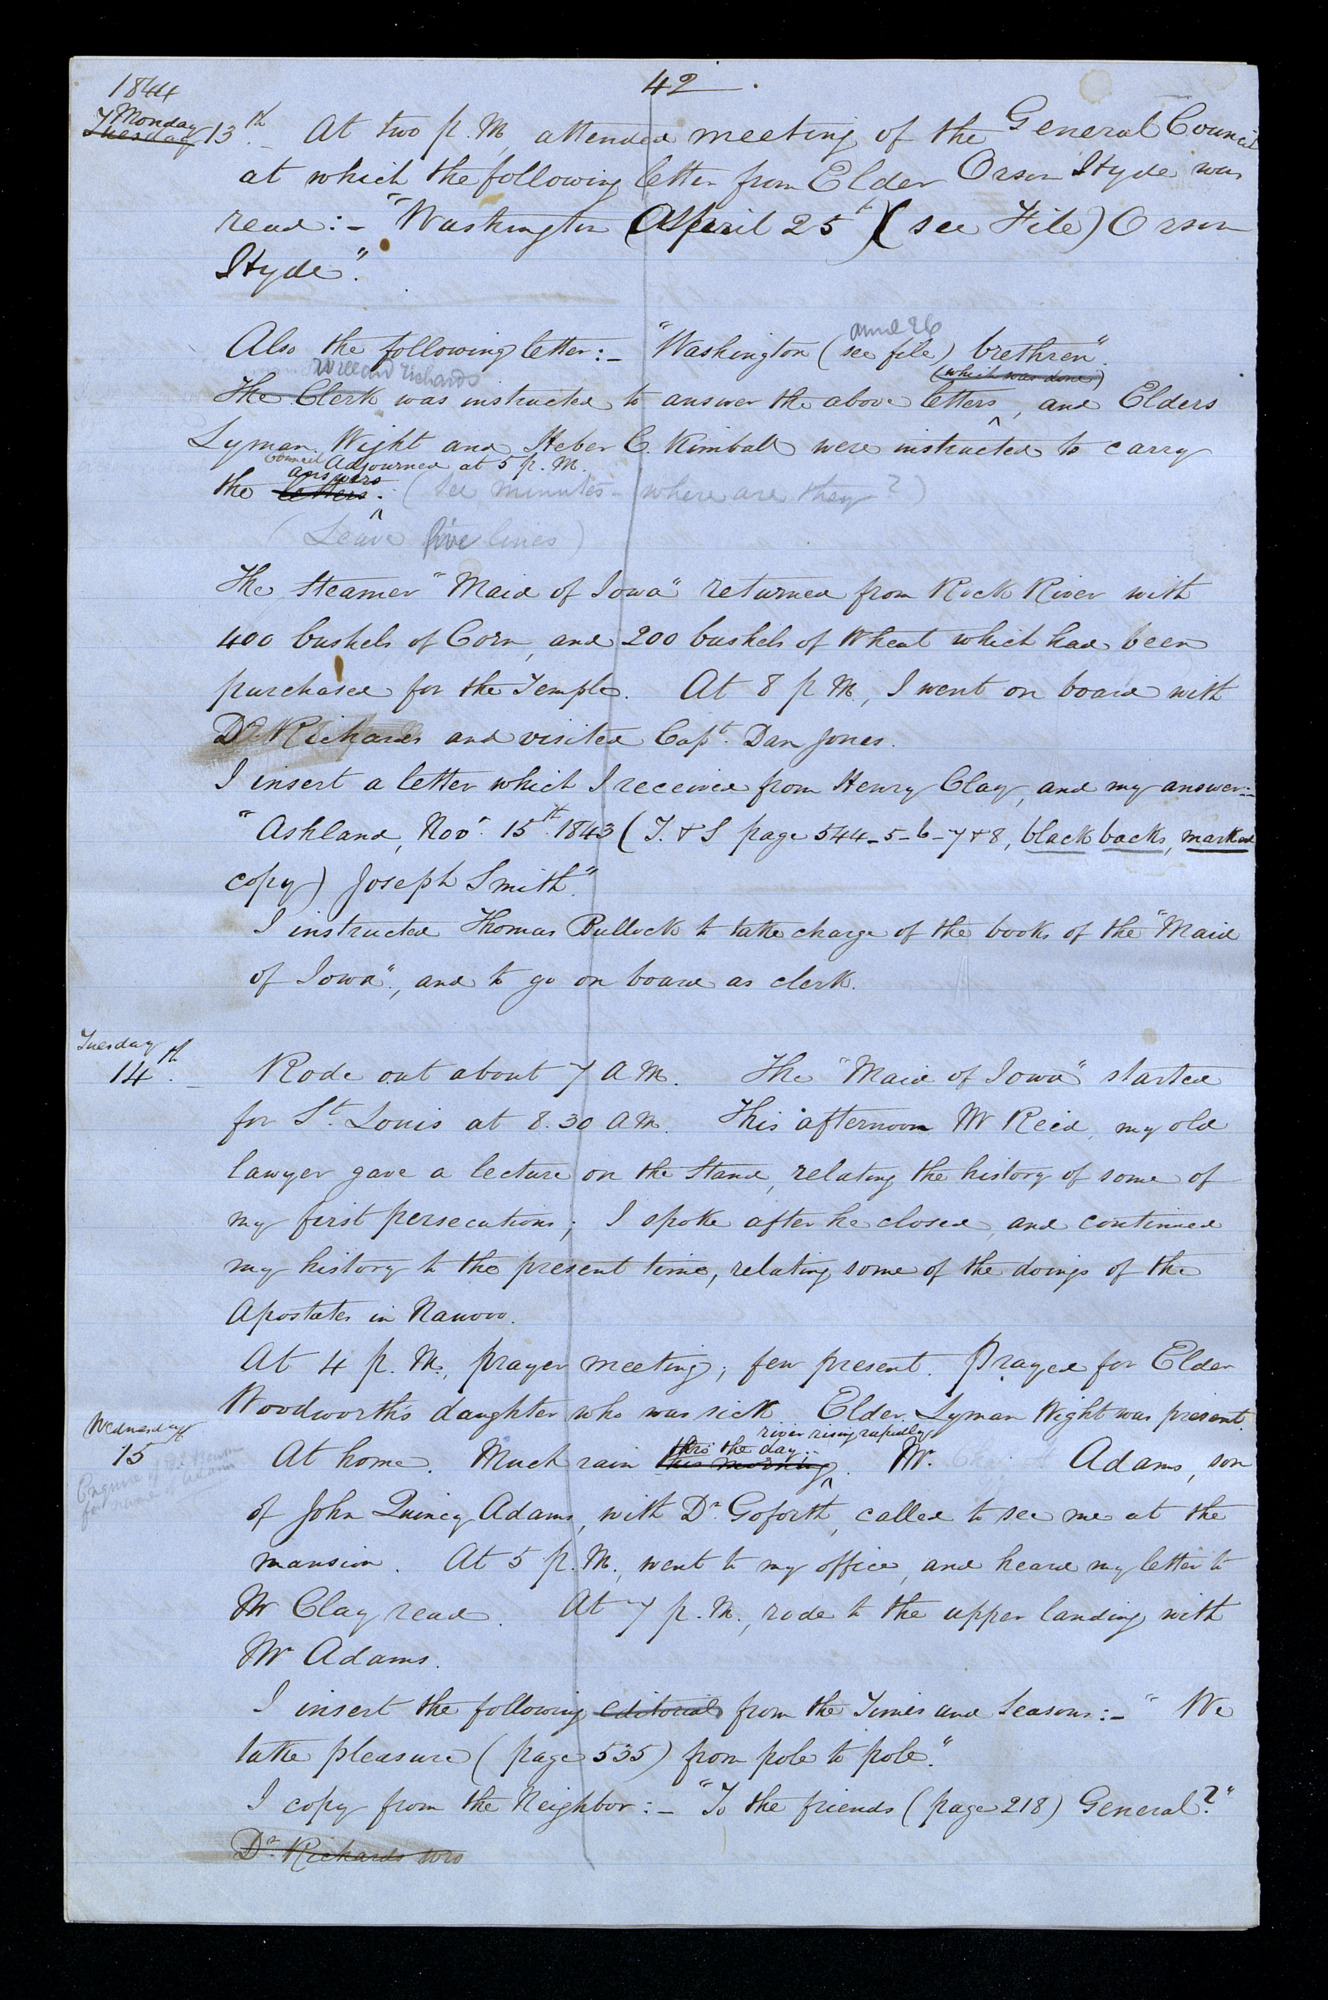 42.
1844
Monday
Tuesday 13th.– At two p. M. attended meeting of the General Council
at which the following letter from Elder Orson Hyde was
read:– "Washington April 25th (see File) Orson
Hyde".
april 26
Also the following letter:– "Washington (see file) brethren".
Willard richards (which was done)
The Clerk was instructed to answer the above letters, and Elders
Lyman Wight and Heber C. Kimball were instructed to carry
Council Adjourned at 5 p. M.
answers
the letters. (See minutes – where are they?)
(Leave five lines)
The Steamer "Maid of Iowa" returned from Rock River with
400 bushels of Corn, and 200 bushels of Wheat which had been
purchased for the Temple. At 8 p M, I went on board with
Dr Richards and visited Capt. Dan Jones.
I insert a letter which I received from Henry Clay, and my answer:–
"Ashland, Novr. 15th. 1843 (T. & S page 544–5–6–7 & 8, black backs, marked
copy) Joseph Smith."
I instructed Thomas Bullock to take charge of the books of the "Maid
of Iowa", and to go on board as clerk.
Tuesday
14th.– Rode out about 7 A M. The "Maid of Iowa" started
for St. Louis at 8.30 A M. This afternoon Mr Reid, my old
lawyer gave a lecture on the Stand, relating the history of some of
my first persecutions; I spoke after he closed, and continued
my history to the present time, relating some of the doings of the
Apostates in Nauvoo.
At 4 p. M., prayer meeting; few present. Prayed for Elder
Woodworth's daughter who was sick. Elder Lyman Wight was present.
Wednesday
river rising rapidly
thro' the day..
15 At home. Much rain this morning. Mr. Adams, son
Enquire of Dr Bern
for name of Adams
of John Quincy Adams, with Dr. Goforth, called to see me at the
mansion. At 5 p. M., went to my office, and heard my letter to
Mr Clay read. At 7 p. M., rode to the upper landing with
Mr Adams.
I insert the following editorial from the Times and Seasons:– "We
take pleasure (page 535) from pole to pole".
I copy from the Neighbor:– "To the friends (page 218) General?"
Dr. Richards wro